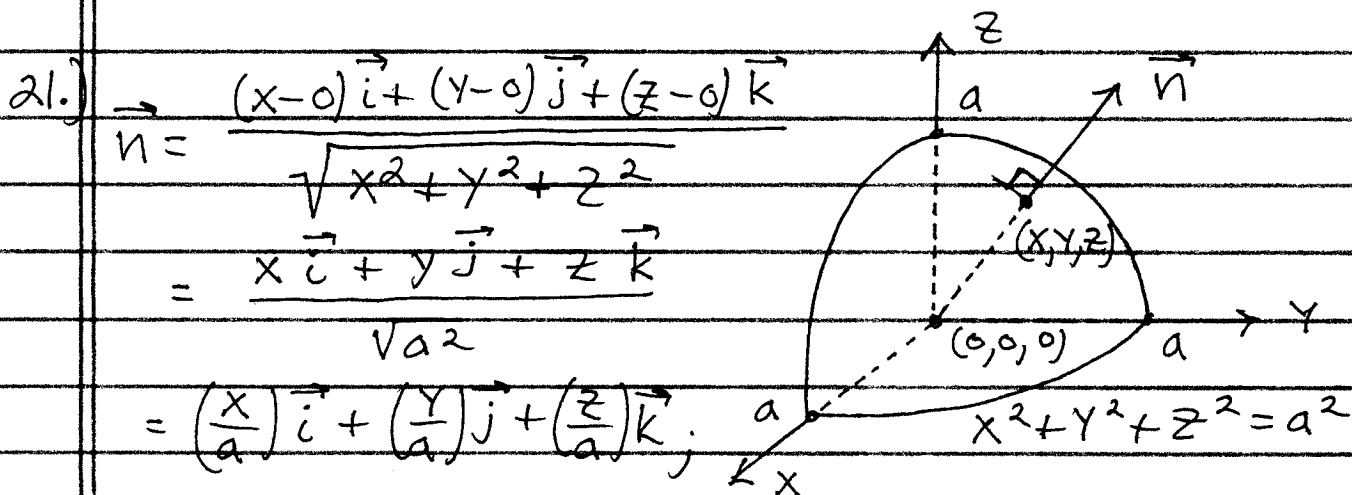 21.)
n⃗ = ((x-0) i⃗ + (y-0) j⃗ + (z-0) k⃗) / √(x² + y² + z²)
= (x i⃗ + y j⃗ + z k⃗) / √a²
= (x/a) i⃗ + (y/a) j⃗ + (z/a) k⃗ ;
z
a
n⃗
(x,y,z)
(0,0,0)
a
y
a
x² + y² + z² = a²
x